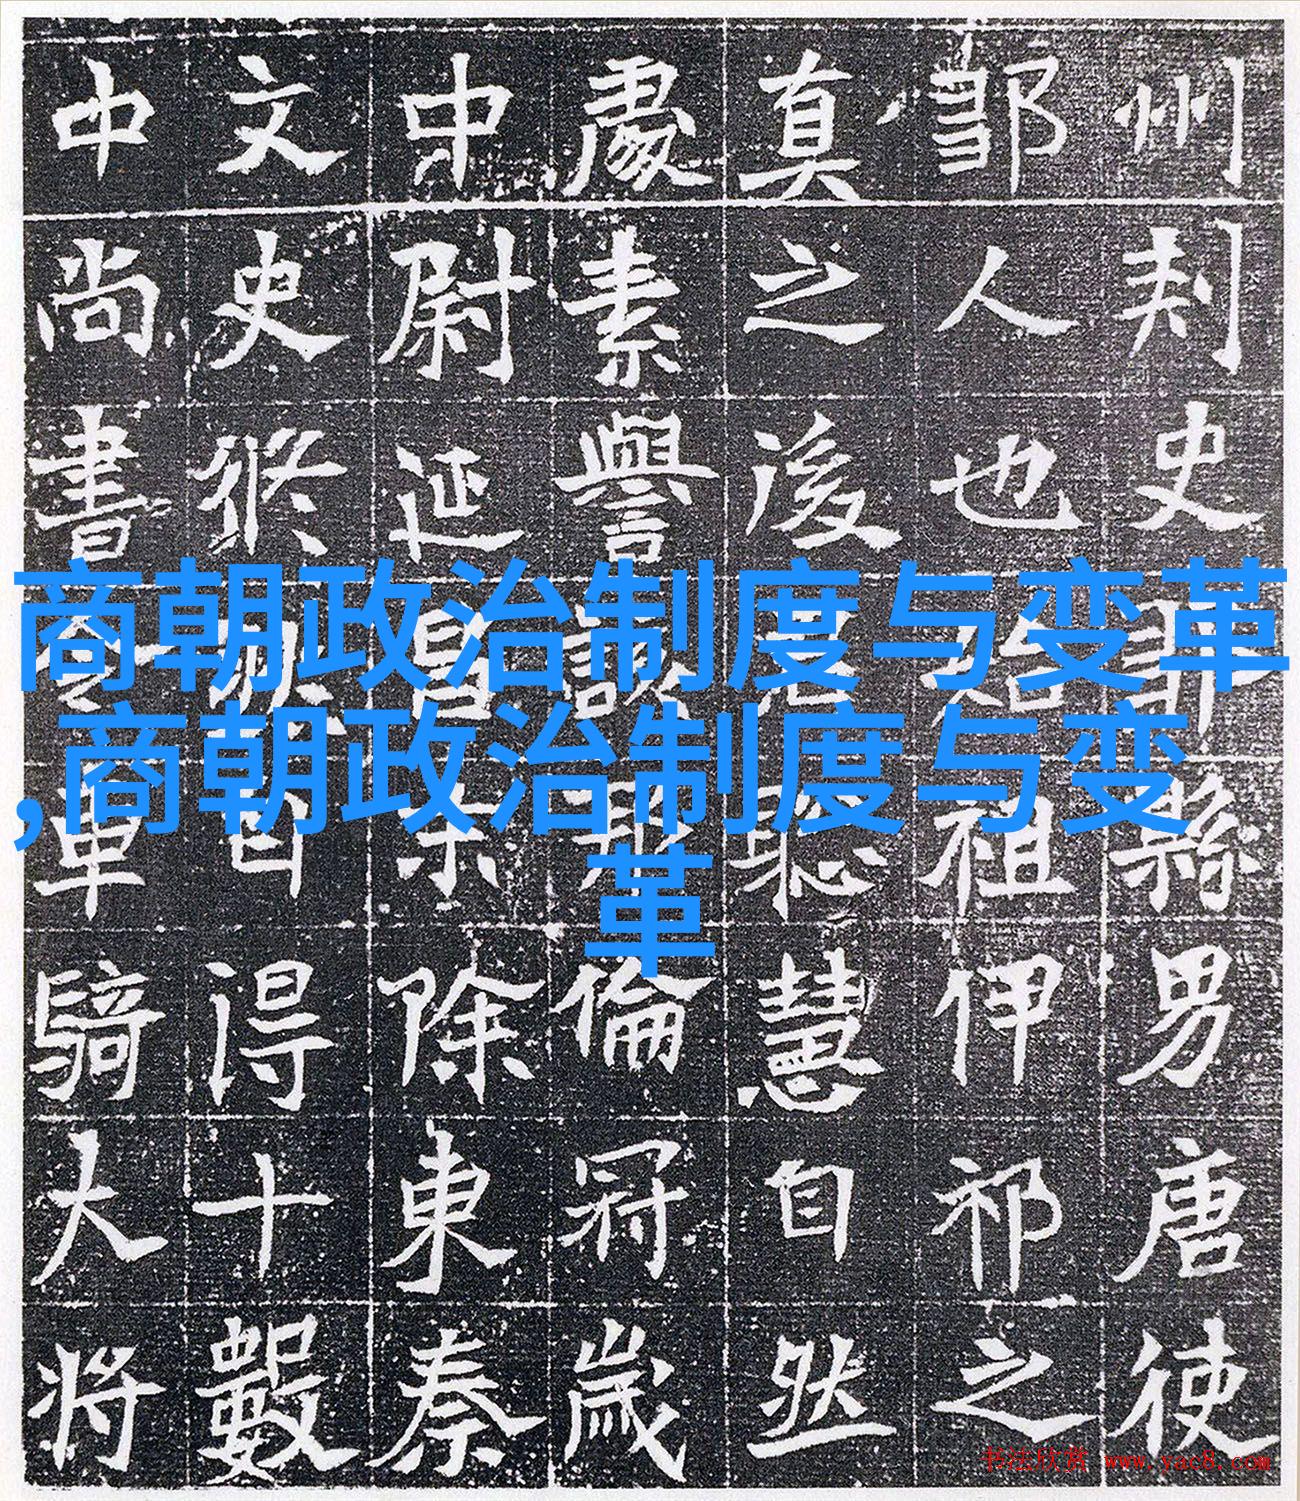 州刺史縣男唐使
鄒人也始祖伊祁之
真之後君聰慧自然
處素譽談倫冠歲
中尉延昌末除東秦
文史脩日得十數
中尚書令車騎大將
商朝政治制度与变革
,商朝政治制度与变
革
书法欣赏 www.yac8.com